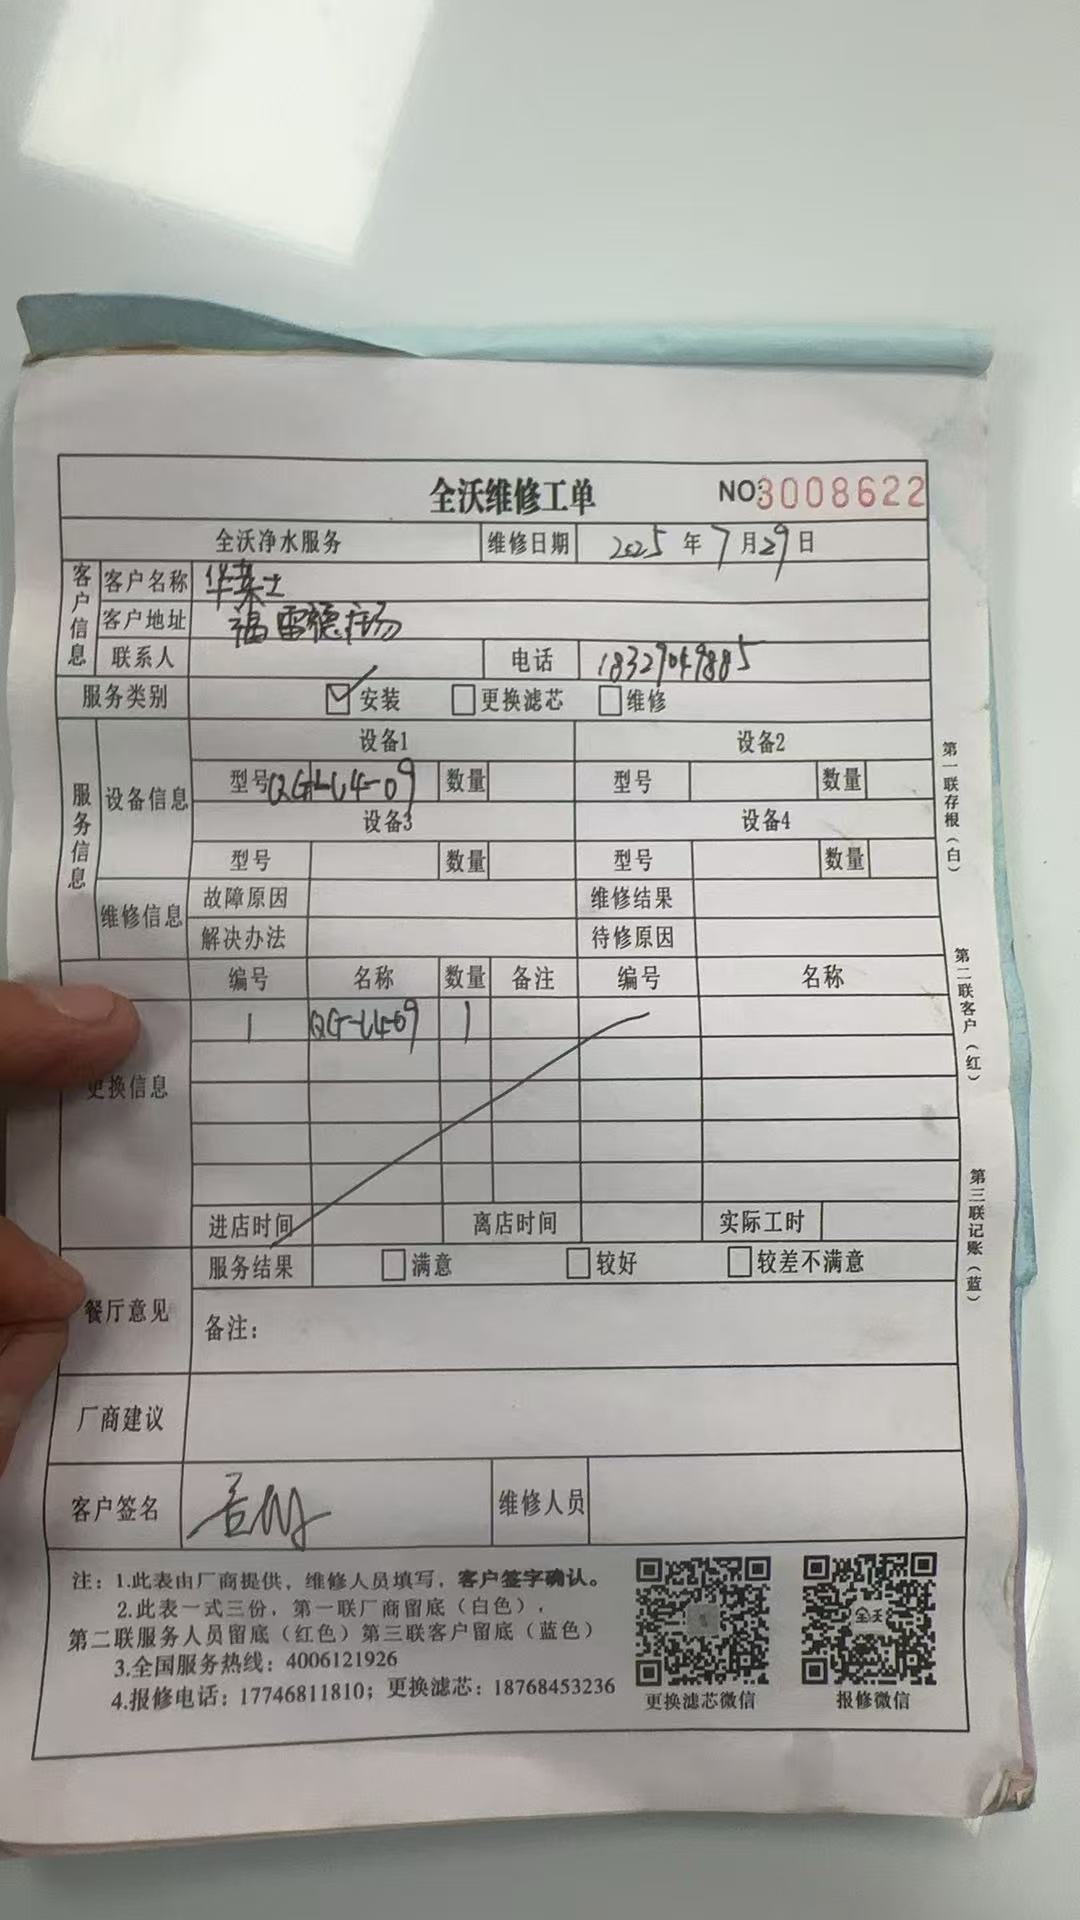 全沃维修工单 NO:3008622
全沃净水服务 维修日期 2025 年 7 月 29 日
客户信息 客户名称 华莱士
客户地址 福雷德广场
联系人 电话 18329049885
服务类别 安装 更换滤芯 维修
服务信息 设备信息 设备1 设备2
型号 QG-L4-09 数量 型号 数量
设备3 设备4
型号 数量 型号 数量
维修信息 故障原因 维修结果
解决办法 待修原因
更换信息 编号 名称 数量 备注 编号 名称
1 QG-L4-09 1
进店时间 离店时间 实际工时
餐厅意见 服务结果 满意 较好 较差不满意
备注:
厂商建议
客户签名 维修人员
注:1.此表由厂商提供,维修人员填写,客户签字确认。
2.此表一式三份,第一联厂商留底(白色),
第二联服务人员留底(红色)第三联客户留底(蓝色)
3.全国服务热线:4006121926
4.报修电话:17746811810;更换滤芯:18768453236
更换滤芯微信 报修微信
全沃
第一联存根(白)
第二联客户(红)
第三联记账(蓝)